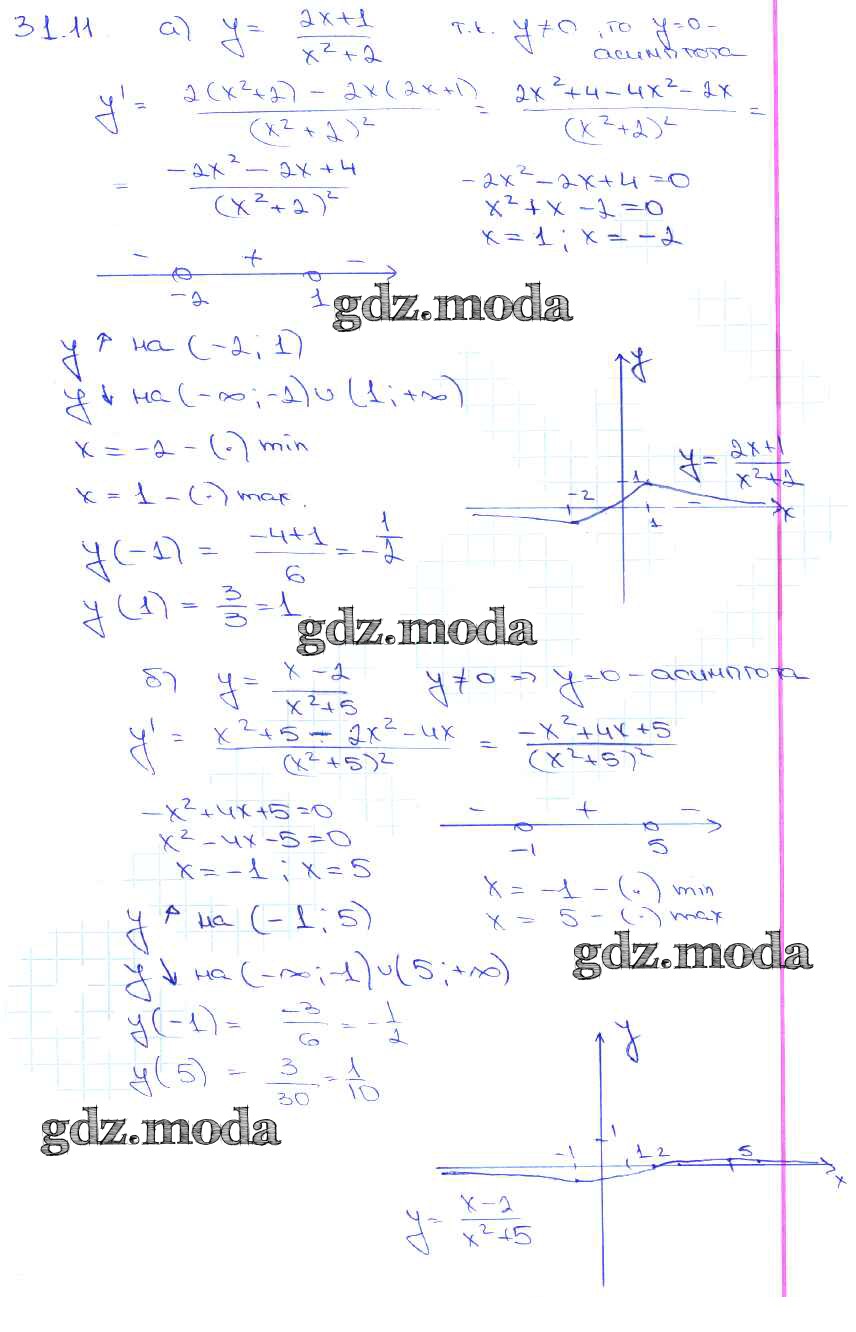 31.11. а) y = (2x+1)/(x²+2) т.к. y≠0, то y=0 - асимптота
y' = (2(x²+2) - 2x(2x+1))/(x²+2)² = (2x²+4-4x²-2x)/(x²+2)² =
= (-2x²-2x+4)/(x²+2)² -2x²-2x+4=0
x²+x-2=0
x=1; x=-2
- + -
-2 1
gdz.moda
y ↑ на (-2; 1)
y ↓ на (-∞; -2)∪(1; +∞)
x = -2 - (·) min
x = 1 - (·) max.
y(-1) = (-4+1)/6 = -1/2
y(1) = 3/3 = 1
y
y = (2x+1)/(x²+2)
1
-2
1
x
gdz.moda
б) y = (x-2)/(x²+5) y≠0 ⇒ y=0 - асимптота
y' = (x²+5-2x²-4x)/(x²+5)² = (-x²+4x+5)/(x²+5)²
-x²+4x+5=0
x²-4x-5=0
x=-1; x=5
- + -
-1 5
x = -1 - (·) min
x = 5 - (·) max
y ↑ на (-1; 5)
y ↓ на (-∞; -1)∪(5; +∞)
gdz.moda
y(-1) = -3/6 = -1/2
y(5) = 3/30 = 1/10
gdz.moda
y
1
-1 1 2 5
x
y = (x-2)/(x²+5)